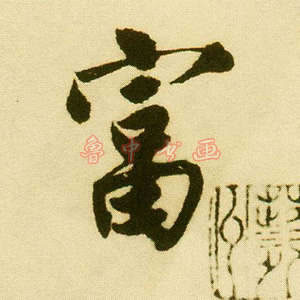 富
鲁中书画